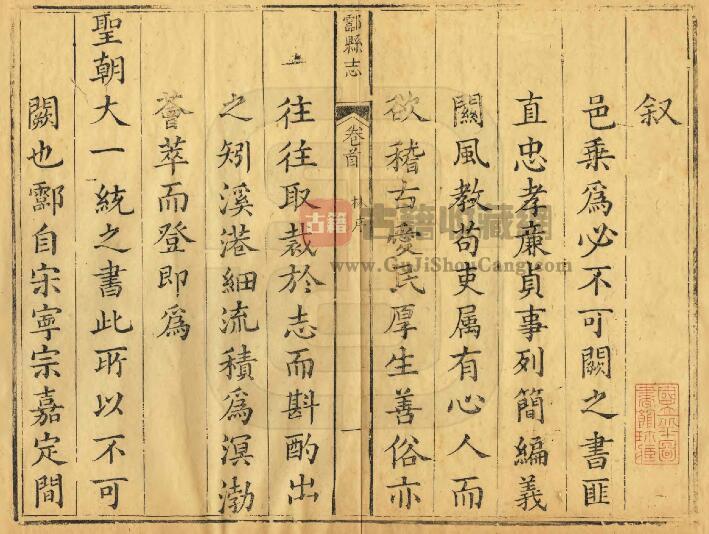 叙
邑乗爲必不可闕之書匪
直忠孝廉貞事列簡編義
關風教苟吏属有心人而
欲稽古愛民厚生善俗亦
酃縣志
卷首
林序
一
往往取裁於志而斟酌出
之矧溪港細流積爲溟渤
薈萃而登即爲
聖朝大一統之書此所以不可
闕也酃自宋寧宗嘉定間
古籍
古籍收藏網
www.GuJiShouCang.com